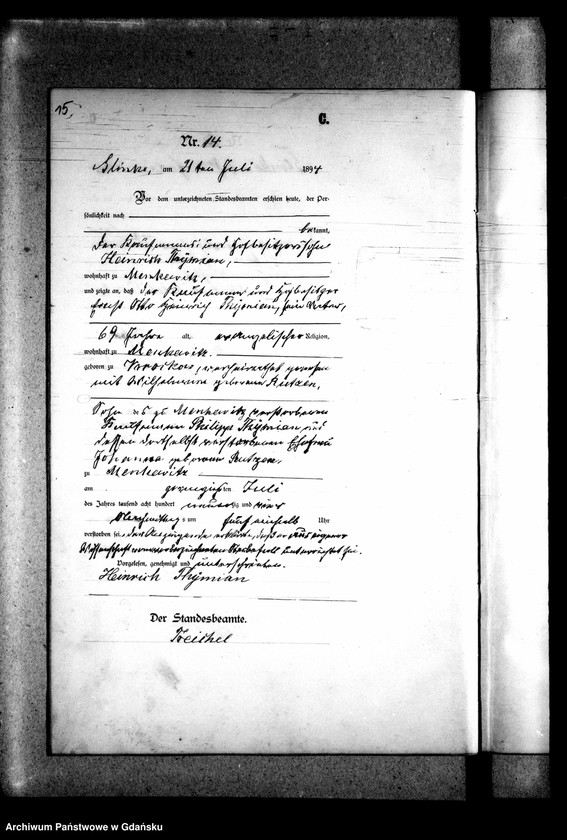 15.
C.
Nr. 14.
am 21ten Juli 1894
Vor dem unterzeichneten Standesbeamten erschien heute, der Per-
sönlichkeit nach
bekannt,
der Kaufmann und Hofbesitzer
Heinrich Thymian,
wohnhaft zu Menkewitz,
und zeigte an, daß der Kaufmann und Hofbesitzer
Otto Heinrich Thymian, sein Vater,
69 Jahre alt, evangelischer Religion,
wohnhaft zu Menkewitz.
geboren zu verheirathet gewesen
mit Wilhelmine geborenen Rutzen,
Sohn des zu Menkewitz verstorbenen
Kaufmann Philipp Thymian und
dessen daselbst verstorbenen Ehefrau
Johanna geborenen Rutzen,
zu Menkewitz
am zwanzigsten Juli
des Jahres tausend acht hundert neunzig und vier
Nachmittags um fünf einhalb Uhr
verstorben sei, der Anzeigende erklärte, daß er aus eigener
Wissenschaft von vorbezeichneten Sterbefall unterrichtet sei.
Vorgelesen, genehmigt und unterschrieben.
Heinrich Thymian
Der Standesbeamte.
Archiwum Państwowe w Gdańsku